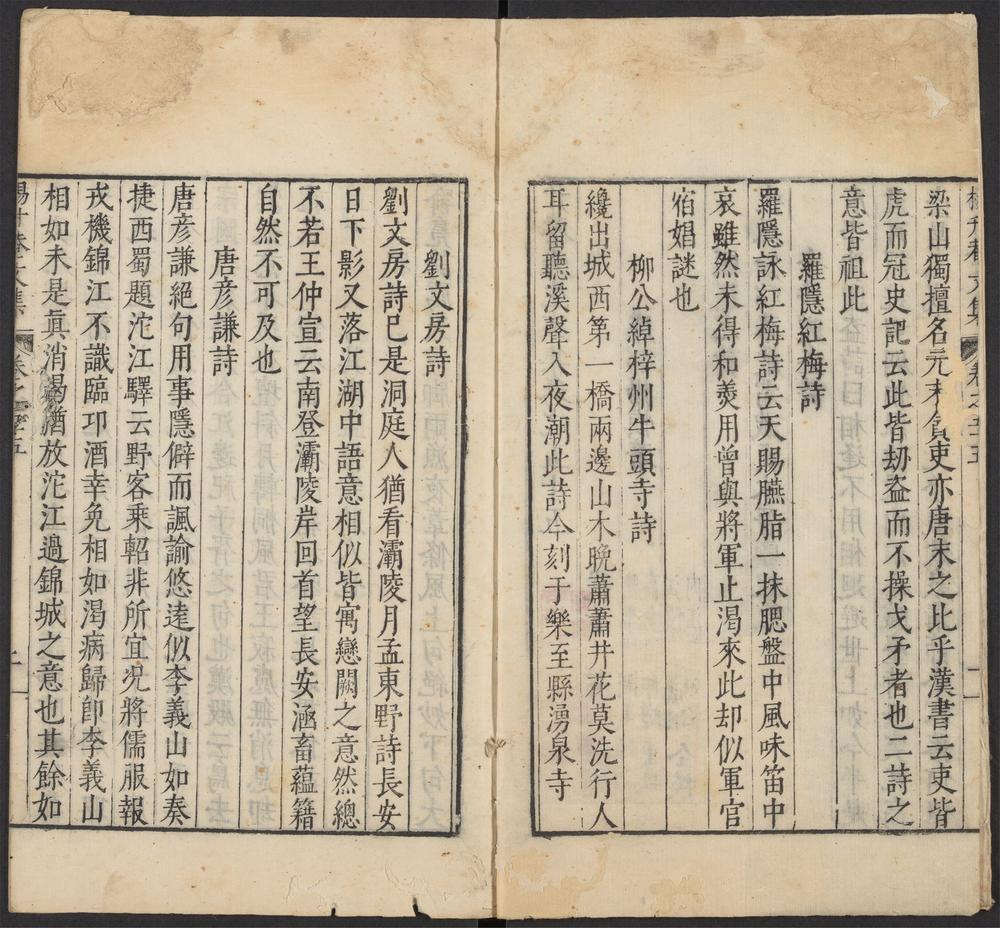 楊升菴文集 卷之五十五
梁山獨擅名元末貪吏亦唐末之比乎漢書云吏皆
虎而冠史記云此皆刼盜而不操戈矛者也二詩之
意皆祖此
羅隱紅梅詩
羅隱詠紅梅詩云天賜臙脂一抹腮盤中風味笛中
哀雖然未得和羮用曾與將軍止渴來此却似軍官
宿娼謎也
柳公綽梓州牛頭寺詩
纔出城西第一橋兩邊山木晩蕭蕭井花莫洗行人
耳留聽溪聲入夜潮此詩今刻于樂至縣湧泉寺
劉文房詩
劉文房詩已是洞庭人猶看灞陵月孟東野詩長安
日下影又落江湖中語意相似皆寓戀闕之意然總
不若王仲宣云南登灞陵岸回首望長安涵畜蘊籍
自然不可及也
唐彦謙詩
唐彦謙絕句用事隱僻而諷諭悠逺似李義山如奏
捷西蜀題沱江驛云野客乘軺非所宜况將儒服報
戎機錦江不識臨邛酒幸免相如渴病歸卽李義山
相如未是眞消渴猶放沱江過錦城之意也其餘如
楊升菴文集 卷之五十五